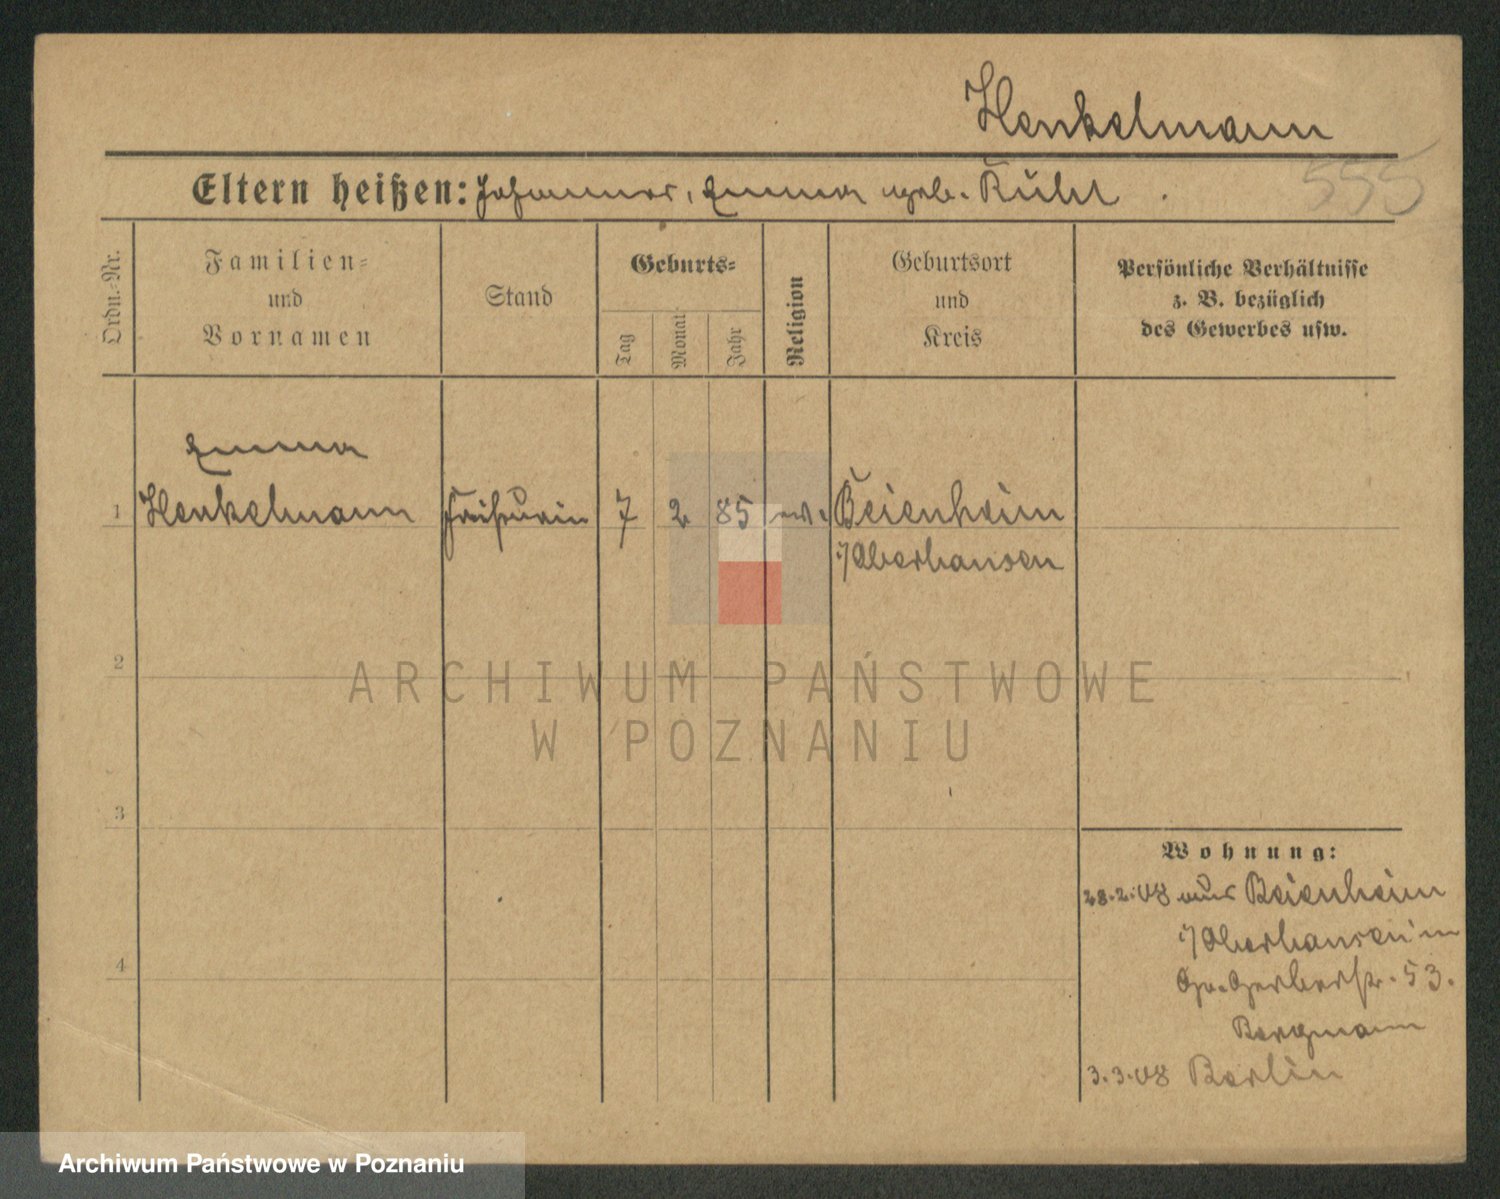 Henkelmann
555
Eltern heißen: Johannes, Emma geb. Rühl.
Ordn.-Nr.
Familien-
und
Vornamen
Stand
Geburts-
Tag
Monat
Jahr
Religion
Geburtsort
und
Kreis
Persönliche Verhältnisse
z. B. bezüglich
des Gewerbes usw.
Emma
1 Henkelmann Friseurin 7 2 85 ev. Beienheim
i/Oberhausen
2
3
4
Wohnung:
28.2.08 aus Beienheim
i/Oberhausen
Gr. Gerberstr. 53.
Bergmann
3.3.08 Berlin
ARCHIWUM PAŃSTWOWE
W POZNANIU
Archiwum Państwowe w Poznaniu